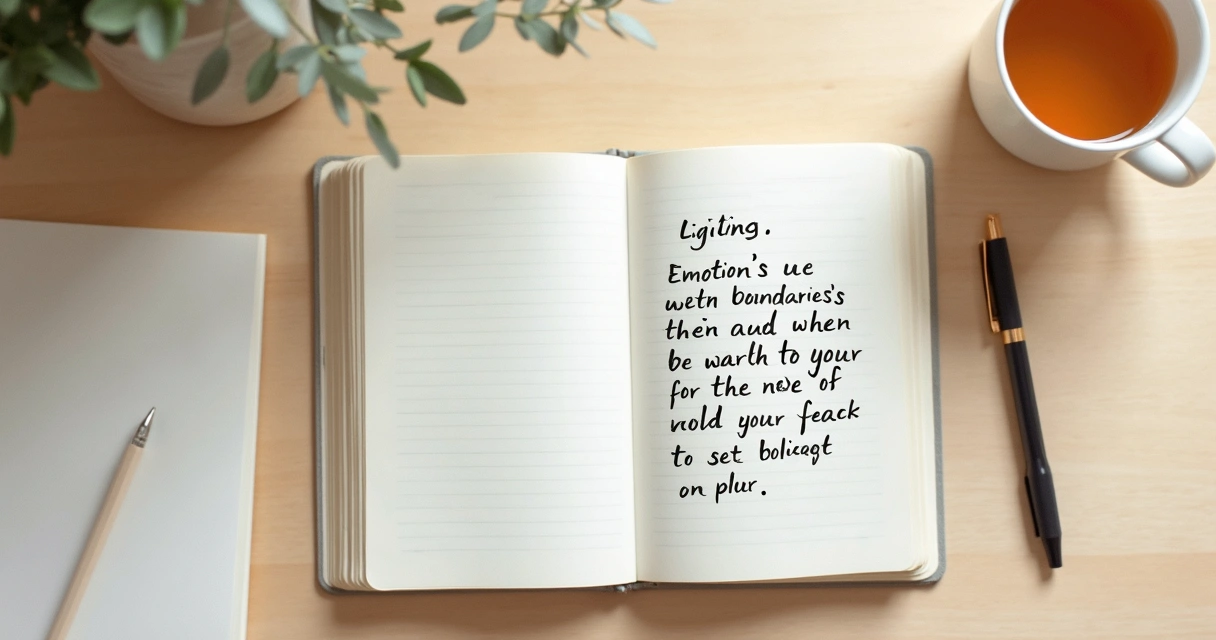 Ligiting.
Emotion's ue
wetn boındaries's
then aud when
be warth to your
for the nwe of
rold your feack
to set bolicagt
on plur.